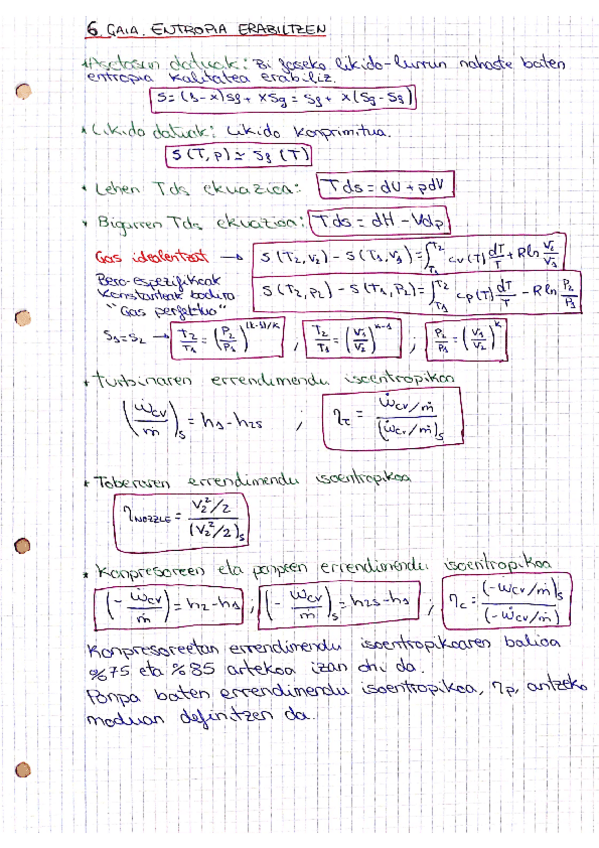 6 GAIA. ENTROPIA ERABILTZEN
* Asetasun datuak: Bi faseko likido-lurrun nahaste baten
entropia kalitatea erabiliz.
S = (1-x)Sf + xSg = Sf + x(Sg - Sf)
* Likido datuak: Likido konprimitua.
S(T, p) ≃ Sf (T)
* Lehen Tds ekuazioa: Tds = dU + pdV
* Bigarren Tds ekuazioa: Tds = dH - Vdp
Gas idealentzat → S(T2, V2) - S(T1, V1) = ∫T1T2 cv(T) dT/T + R ln V2/V1
Bero espezifikoak
konstanteak badira
"Gas perfektuo"
S(T2, p2) - S(T1, P1) = ∫T1T2 cp(T) dT/T - R ln P2/P1
S1=S2 → T2/T1 = (P2/P1)^(k-1)/k ; T2/T1 = (V1/V2)^k-1 ; P2/P1 = (V1/V2)^k
* Turbinaren errendimendu isoentropikoa
(Ẇcv/ṁ)s = h1 - h2s ; ηt = Ẇcv/ṁ / (Ẇcv/ṁ)s
* Toberaren errendimendu isoentropikoa
ηNOZZLE = V2²/2 / (V2²/2)s
* Konpresoreen eta ponpeen errendimendu isoentropikoa
(- Ẇcv/ṁ) = h2 - h1 ; (- Ẇcv/ṁ)s = h2s - h1 ; ηc = (-Ẇcv/ṁ)s / (-Ẇcv/ṁ)
Konpresoreetan errendimendu isoentropikoaren balioa
%75 eta %85 artekoa izan ohi da.
Ponpa baten errendimendu isoentropikoa, ηp, antzeko
moduan definitzen da.